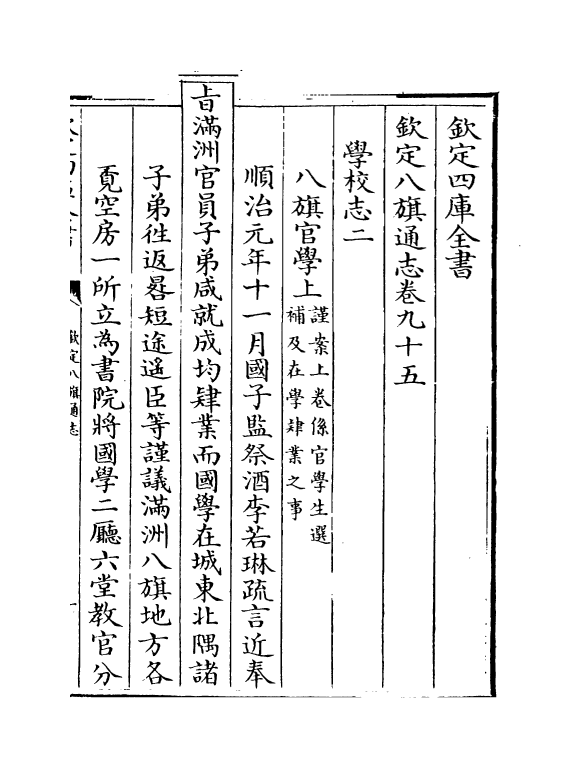 欽定四庫全書
欽定八旗通志卷九十五
學校志二
八旗官學上謹案上卷係官學生選
補及在學肄業之事
順治元年十一月國子監祭酒李若琳疏言近奉
旨滿洲官員子弟咸就成均肄業而國學在城東北隅諸
子弟徃返晷短途遥臣等謹議滿洲八旗地方各
覓空房一所立為書院將國學二廳六堂教官分
欽定八旗通志
一